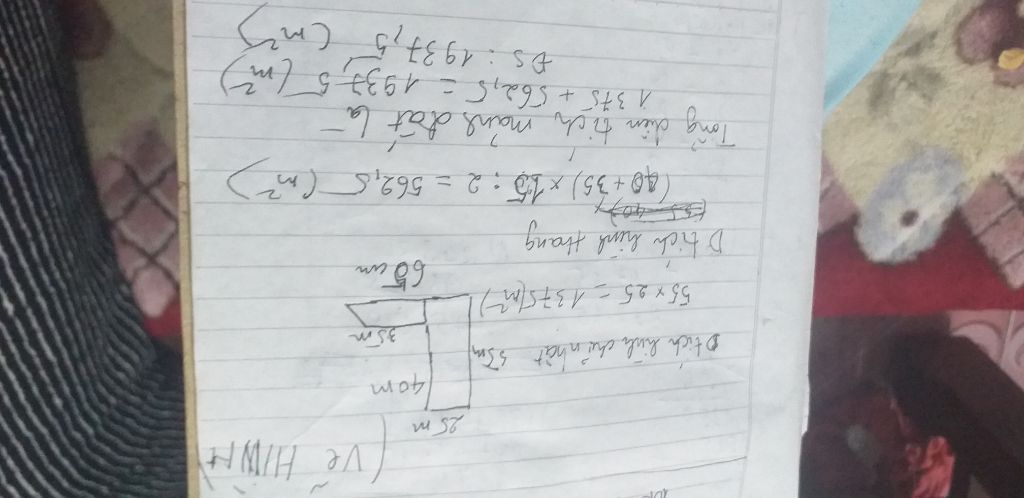 (Vẽ HÌNH)
25m
40m
55m
35m
65 cm
Dtích hình chữ nhật
55 x 25 = 1375 (m²)
D tích hình thang
(40 + 35) x 15 : 2 = 562,5 (m²)
Tổng diện tích mảnh đất là
1375 + 562,5 = 1937,5 (m²)
ĐS : 1937,5 (m²)